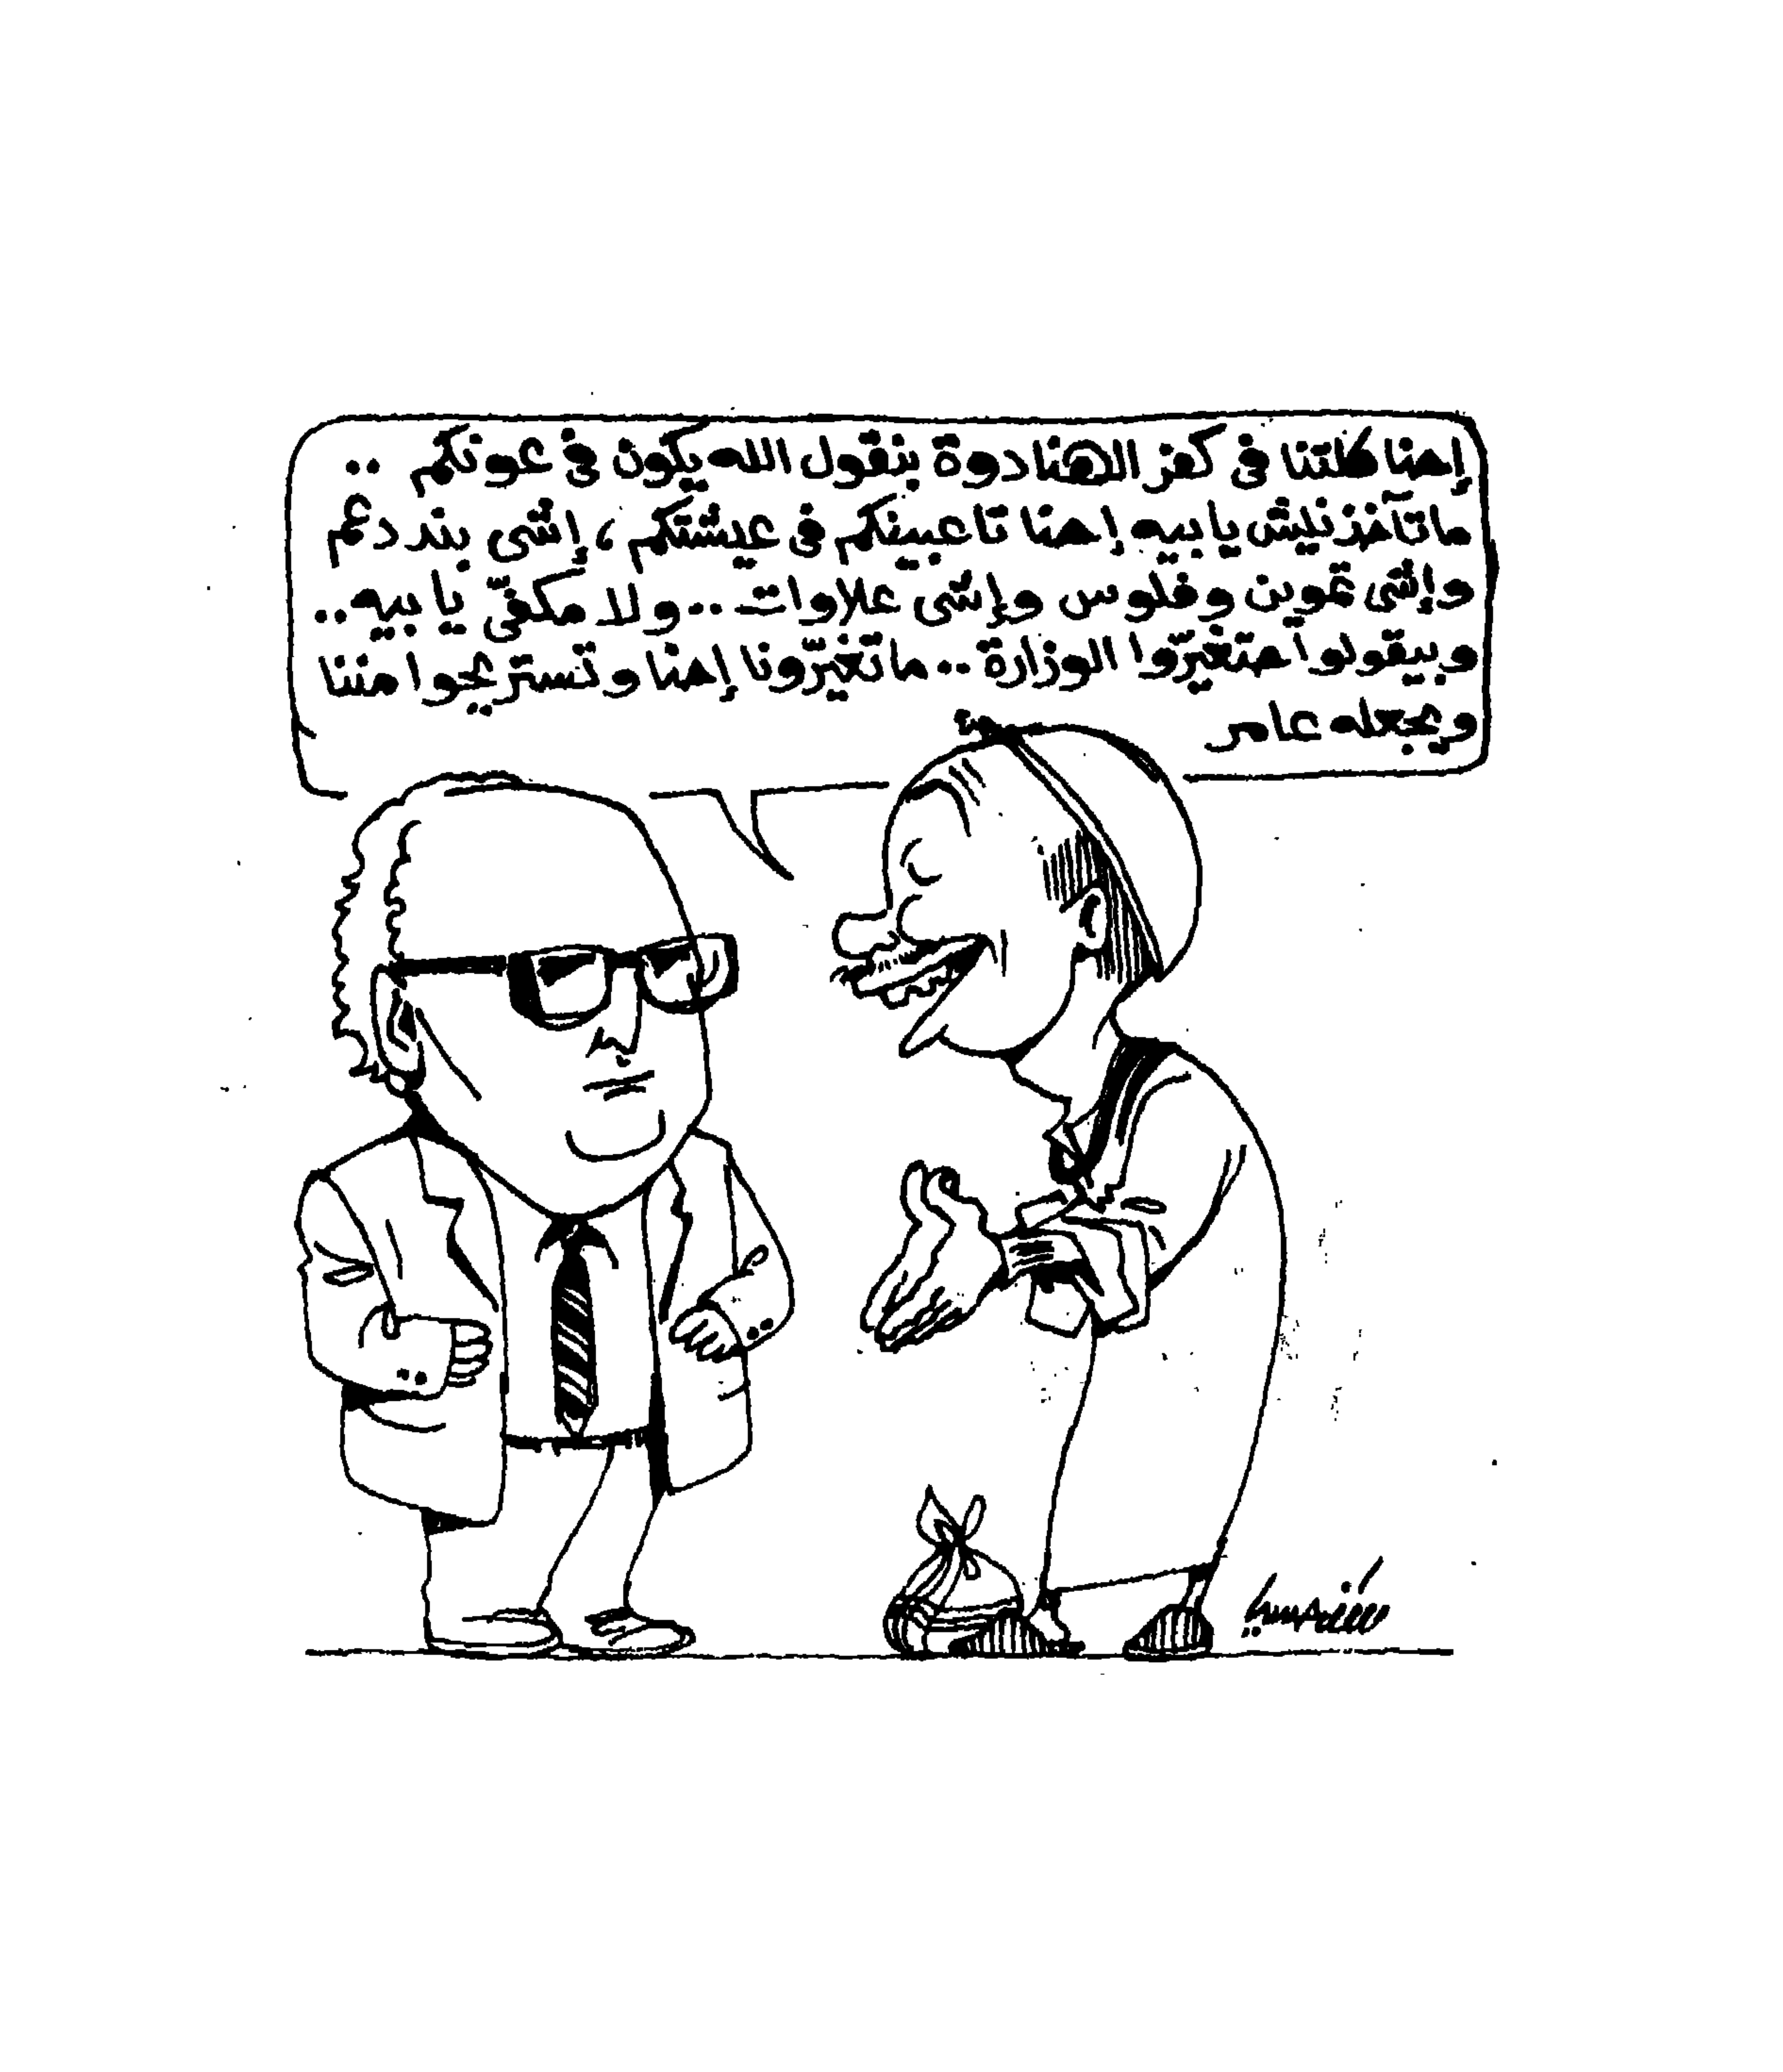 إحنا كلتنا فى كفر الهنادوة بنقول الله يكون فى عونكم ..
ماتآخذنيش يا بيه إحنا تاعبينكم فى عيشتكم ، إشى بند دعم
وإشى تموين وفلوس وإشى علاوات .. ولا مكفّى يا بيه ..
وبيقولوا حتغيرّوا الوزارة .. ماتغيرّونا إحنا وتستريحوا مننا
ويجعله عامر